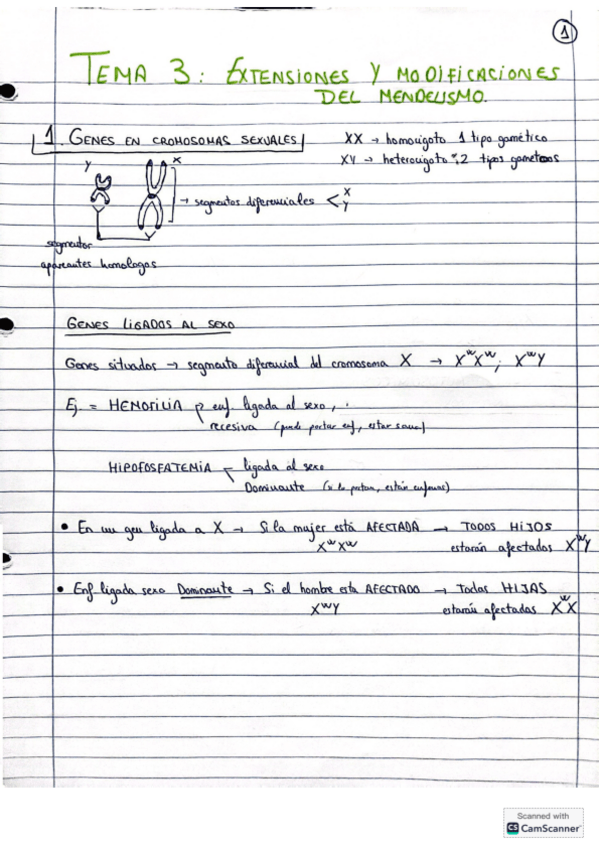 1
TEMA 3: EXTENSIONES Y MODIFICACIONES
DEL MENDELISMO.
1. GENES EN CROMOSOMAS SEXUALES
XX → homocigoto 1 tipo gamético
XY → heterocigoto 2 tipos gametos
Y X
→ segmentos diferenciales < X
Y
segmentos
apareantes homologos
GENES LIGADOS AL SEXO
Genes situados → segmento diferencial del cromosoma X → XʷXʷ; XʷY
Ej. = HEMOFILIA enf. ligada al sexo,
recesiva (puede portar enf, estar sano)
HIPOFOSFATEMIA ligada al sexo
Dominante (si lo portan, están enfermos)
• En un gen ligada a X → Si la mujer está AFECTADA → TODOS HIJOS
XʷXʷ estarán afectados XʷY
• Enf ligada sexo Dominante → Si el hombre esta AFECTADO → Todas HIJAS
XʷY estarán afectados XʷX
Scanned with
CS CamScanner